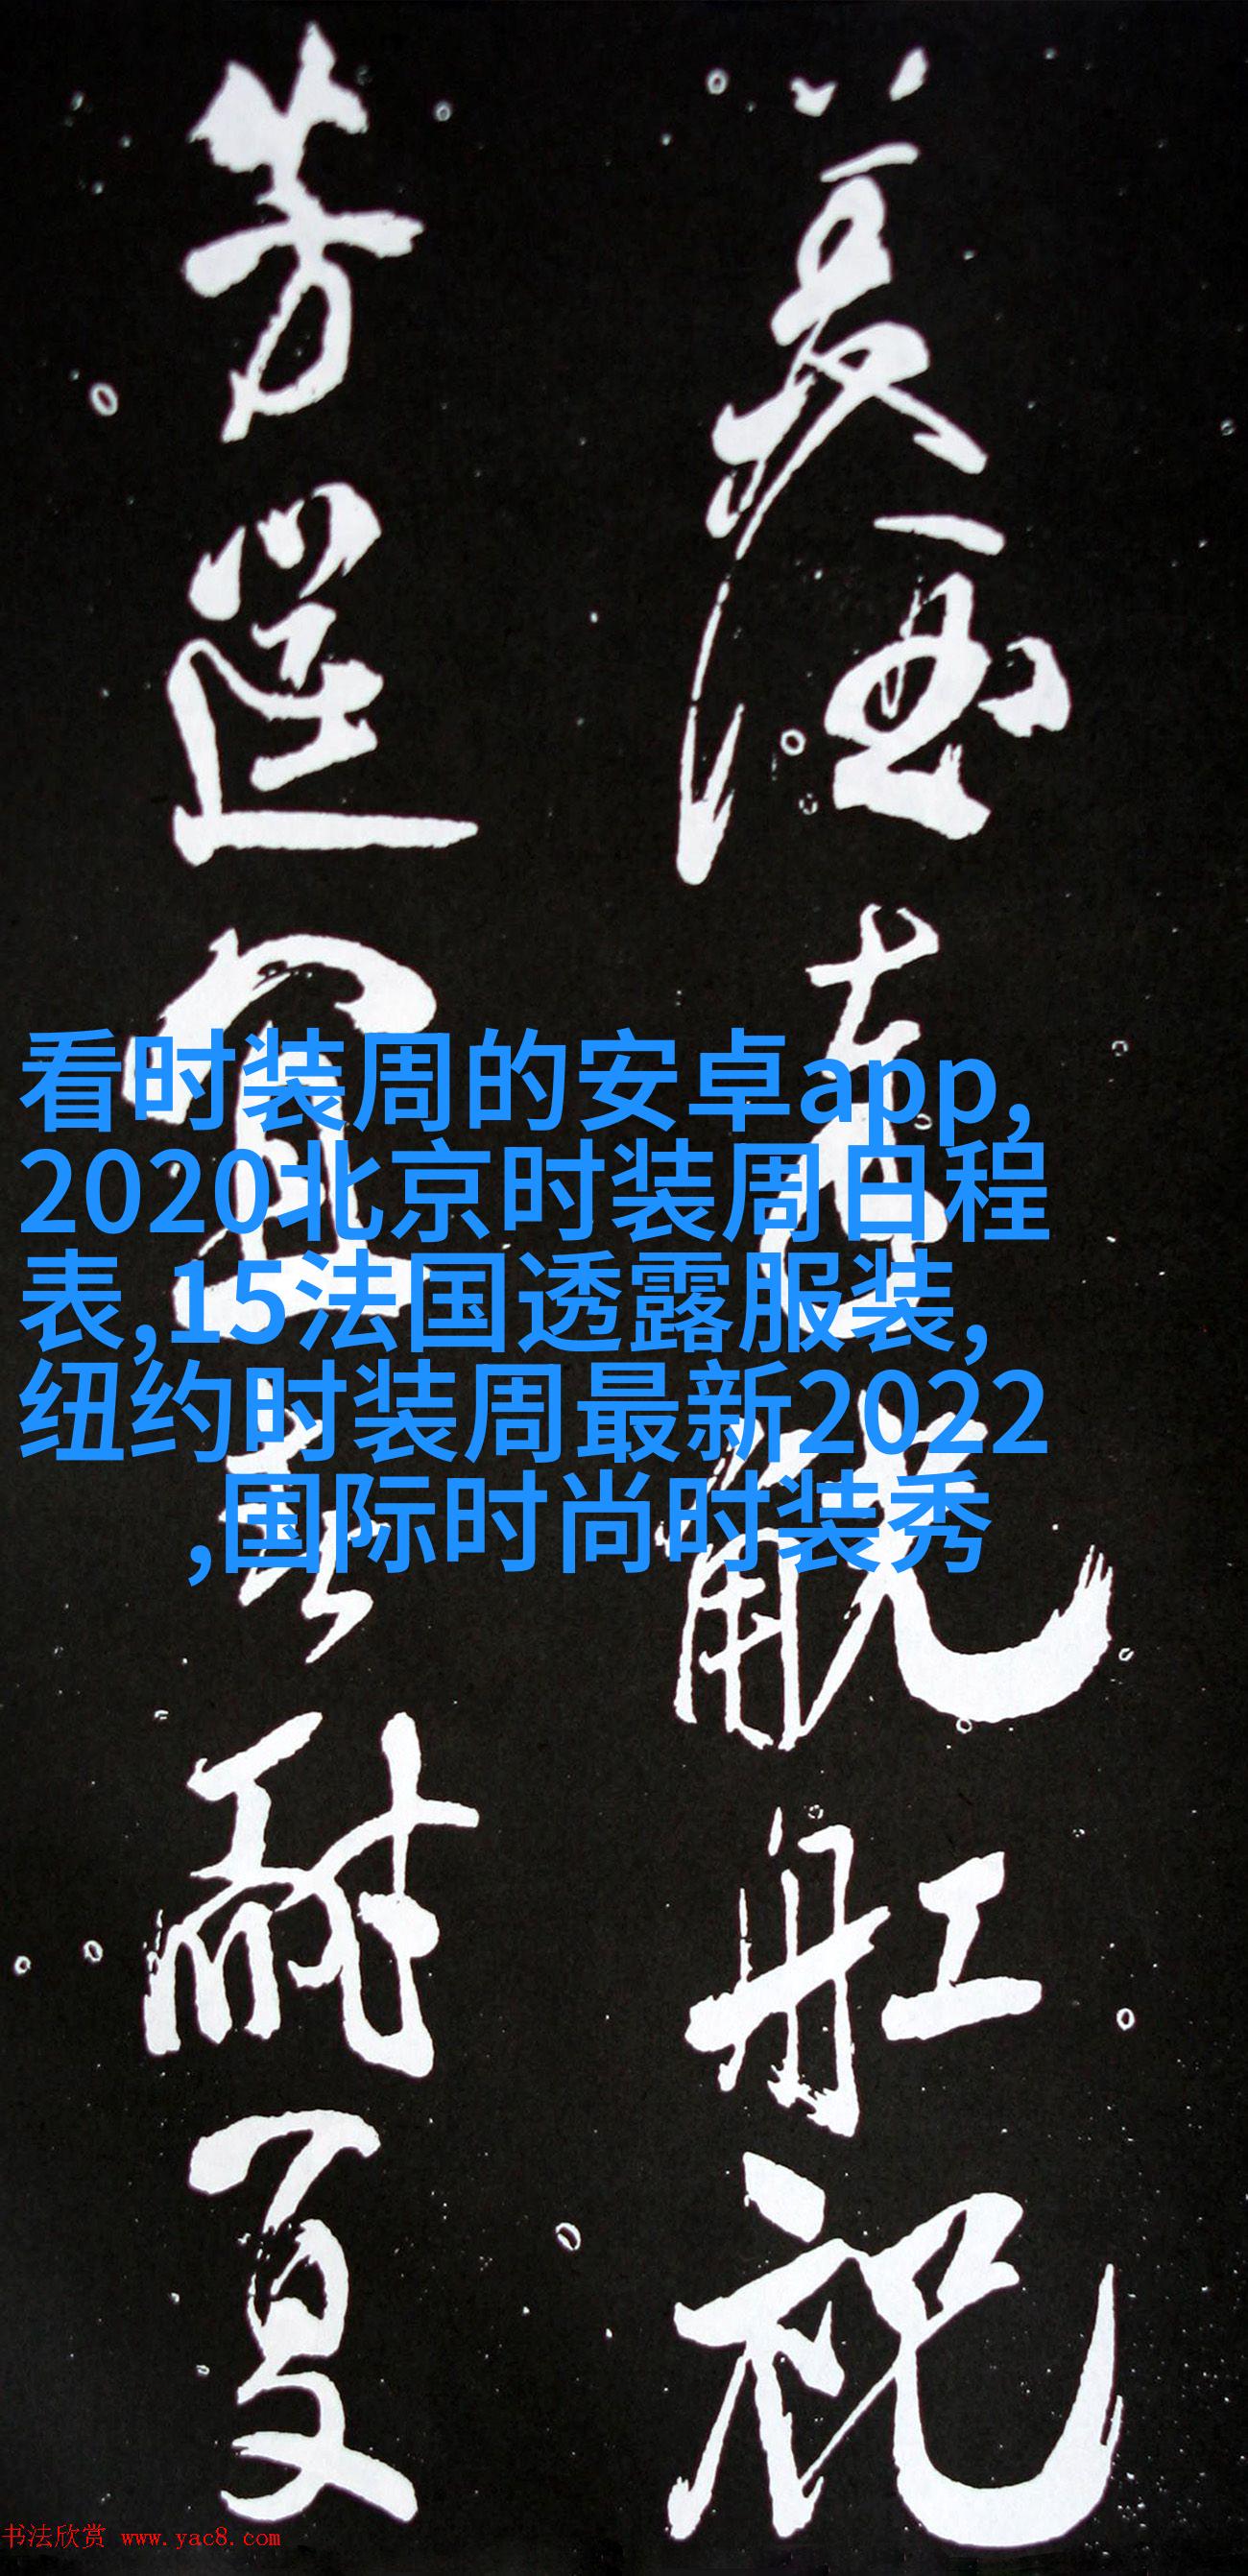 觥舡祝
芳筵宜耐夏
看时装周的安卓app,
2020北京时装周日程
表,15法国透露服装,
纽约时装周最新2022
,国际时尚时装秀
书法欣赏 www.yac8.com